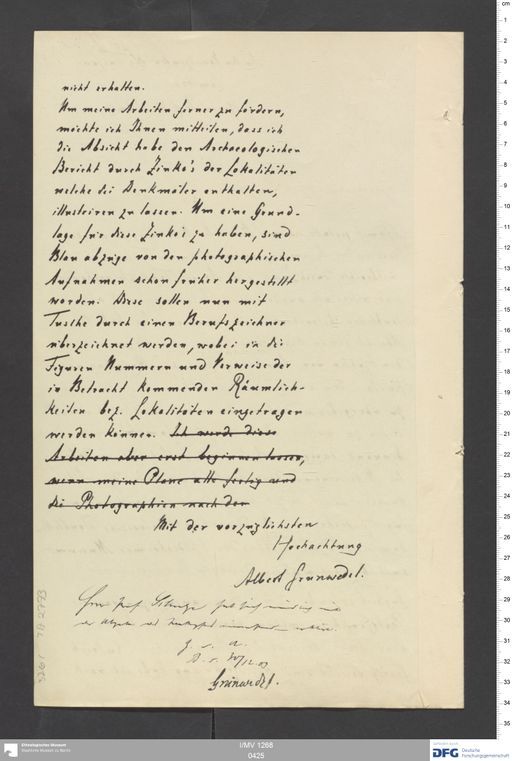 nicht erhalten.
Um meine Arbeiten ferner zu fördern,
möchte ich Ihnen mitteilen, dass ich
die Absicht habe den Archaeologischen
Bericht durch Zinko's der Lokalitäten
welche die Denkmäler enthalten,
illustriren zu lassen. Um eine Grund-
lage für diese Zinko's zu haben, sind
Blau abzüge von den photographischen
Aufnahmen schon früher hergestellt
worden. Diese sollen nun mit
Tusche durch einen Berufszeichner
überzeichnet werden, wobei in die
Figuren Nummern und Verweise der
in Betracht kommenden Räumlich-
keiten bez. Lokalitäten eingetragen
werden können. Ich werde diese
Arbeiten aber erst beginnen lassen,
wenn meine Plane alle fertig und
die Photographien nach den
Mit der vorzüglichsten
Hochachtung
Albert Grünwedel.
Herr Prof.
Grünwedel.
I/MV 1268
0425
Ethnologisches Museum
Staatliche Museen zu Berlin
DFG
Deutsche
Forschungsgemeinschaft